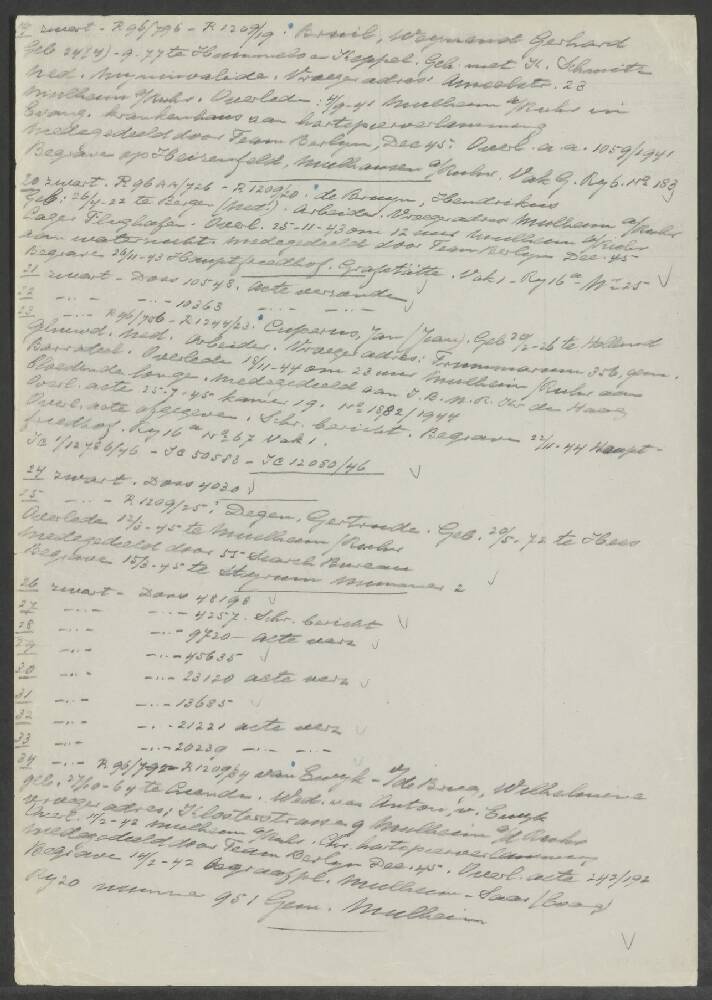 zwart - R96/796 - R1209/19: Bruil, Weynand Gerhard
Geb 24 (4)-9-77 te Hummelo en Keppel. Geh. met H. Schmitz
ned. mijninvalide. Vroeger adres: 23
Mulheim a/Ruhr. Overleden: 4/9-41 Mulheim a/Ruhr in
Evang. krankenhaus aan hartspierverlamming
medegedeeld door Team Berlyn, Dec 45. Overl. a.a. 1059/1941
Begraven op Heizenfeld, Mulhausen a/Ruhr. Vak G. Ry 6. No 183
20 zwart. R96AA/726 - R1209/20: de Bruyn, Hendrikus
Geb: 26/4-22 te Bergen (Ned.). Arbeider. Vroeger adres Mulheim a/Ruhr
Lager Flughafen. Overl. 25-11-43 om 12 uur Mulheim a/Ruhr
aan waterzucht medegedeeld door Team Berlyn Dec. 45
Begraven 26/11-43 Hauptfriedhof. Grabstätte. Vak 1 - Ry 16a - No 25 √
21 zwart - Doos 10548. acte verzonden √
22 -..- -..- 10363 -..- -..-
23 -..- R96/756 - R1244/23: Cuperus, Jan (Jean). Geb 20/2-26 te Holland
Gehuwd. Ned. Arbeider. Vroeger adres: Frummarum 356, gem.
Barradeel. Overleden 18/11-44 om 23 uur Mulheim/Ruhr aan
bloedende longe. Medegedeeld aan I.B.N.R. Kr den Haag
Overl. acte 25-7-45 kamer 19. No 1882/1944
Overl. acte afgegeven. Schr. bericht. Begraven 22/11-44 Haupt-
friedhof. Ry 16a No 67 Vak 1.
JC 1/12786/46 - JC 50583 - JC 12080/46 √
24 zwart. Doos 4030 √
25 -..- R1209/25: Degen, Gertrude. Geb. 20/5-72 te Hees
Overleden 12/3-45 te Mulheim/Ruhr
medegedeeld door Search Bureau
Begraven 15/3-45 te Styrum nummer 2 √
26 zwart - Doos 48198 √
27 -..- -..- 4257. Schr. bericht √
28 -..- -..- 9720 - acte verz √
29 -..- -..- 45635 √
30 -..- -..- 23120 acte verz √
31 -..- -..- 13685 √
32 -..- -..- 21221 acte verz √
33 -..- -..- 20239 -..- -..-
34 -..- R96/792 - R1209/34 van Ewyk - v/de Brug, Wilhelmina
geb. 27/10-64 te . Wed. van Anton v. Ewyk
vroeger adres; Klosterstrasse 9 Mulheim a/d Ruhr
Overl. 11/2-42 Mulheim a/Ruhr. Chr. hartspierverlamming
medegedeeld door Team Berlyn Dec. 45. Overl. acte 242/192
Begraven 14/2-42 begraafpl. Mulheim - Saar (Evang)
Ry 20 nummer 951 Gem. Mulheim
√